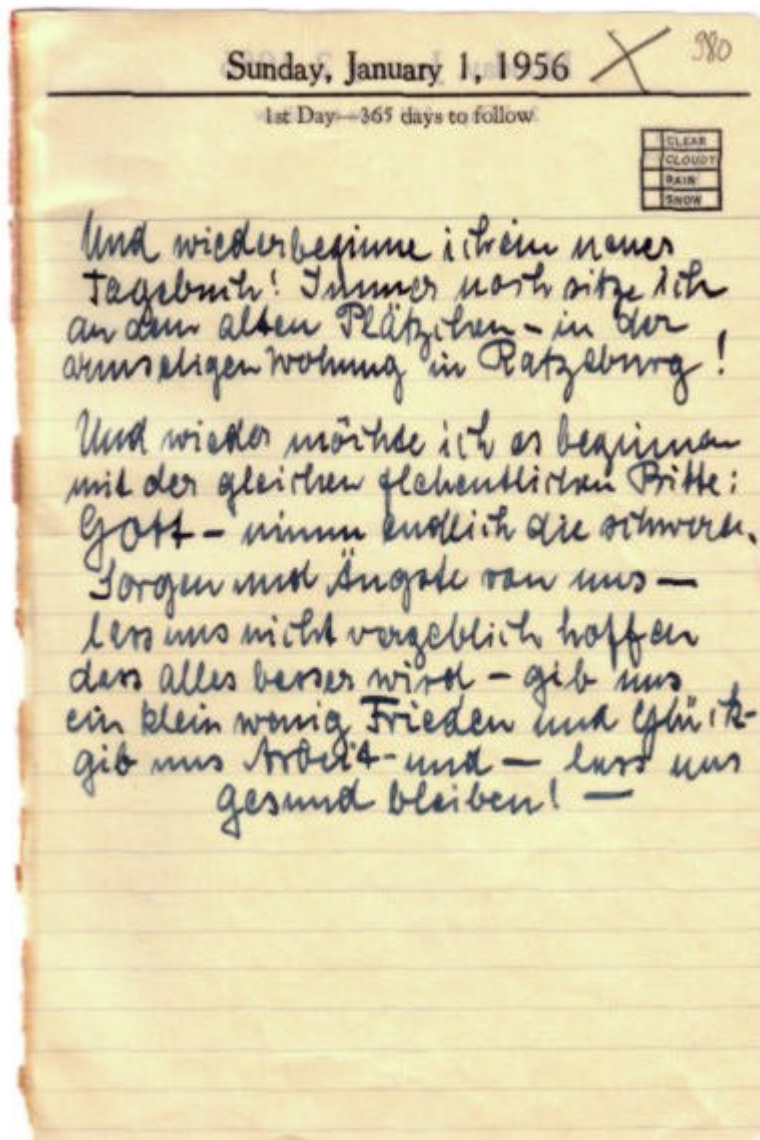 Sunday, January 1, 1956
980
1st Day—365 days to follow
CLEAR
CLOUDY
RAIN
SNOW
Und wieder beginne ich ein neues
Tagebuch! Immer noch sitze ich
an dem alten Plätzchen - in der
armseligen Wohnung in Ratzeburg!
Und wieder möchte ich es beginnen
mit der gleichen flehentlichen Bitte:
Gott - nimm endlich die schweren
Sorgen und Ängste von uns —
lass uns nicht vergeblich hoffen
dass alles besser wird - gib uns
ein klein wenig Frieden und Glück-
gib uns Arbeit - und — lass uns
gesund bleiben! —